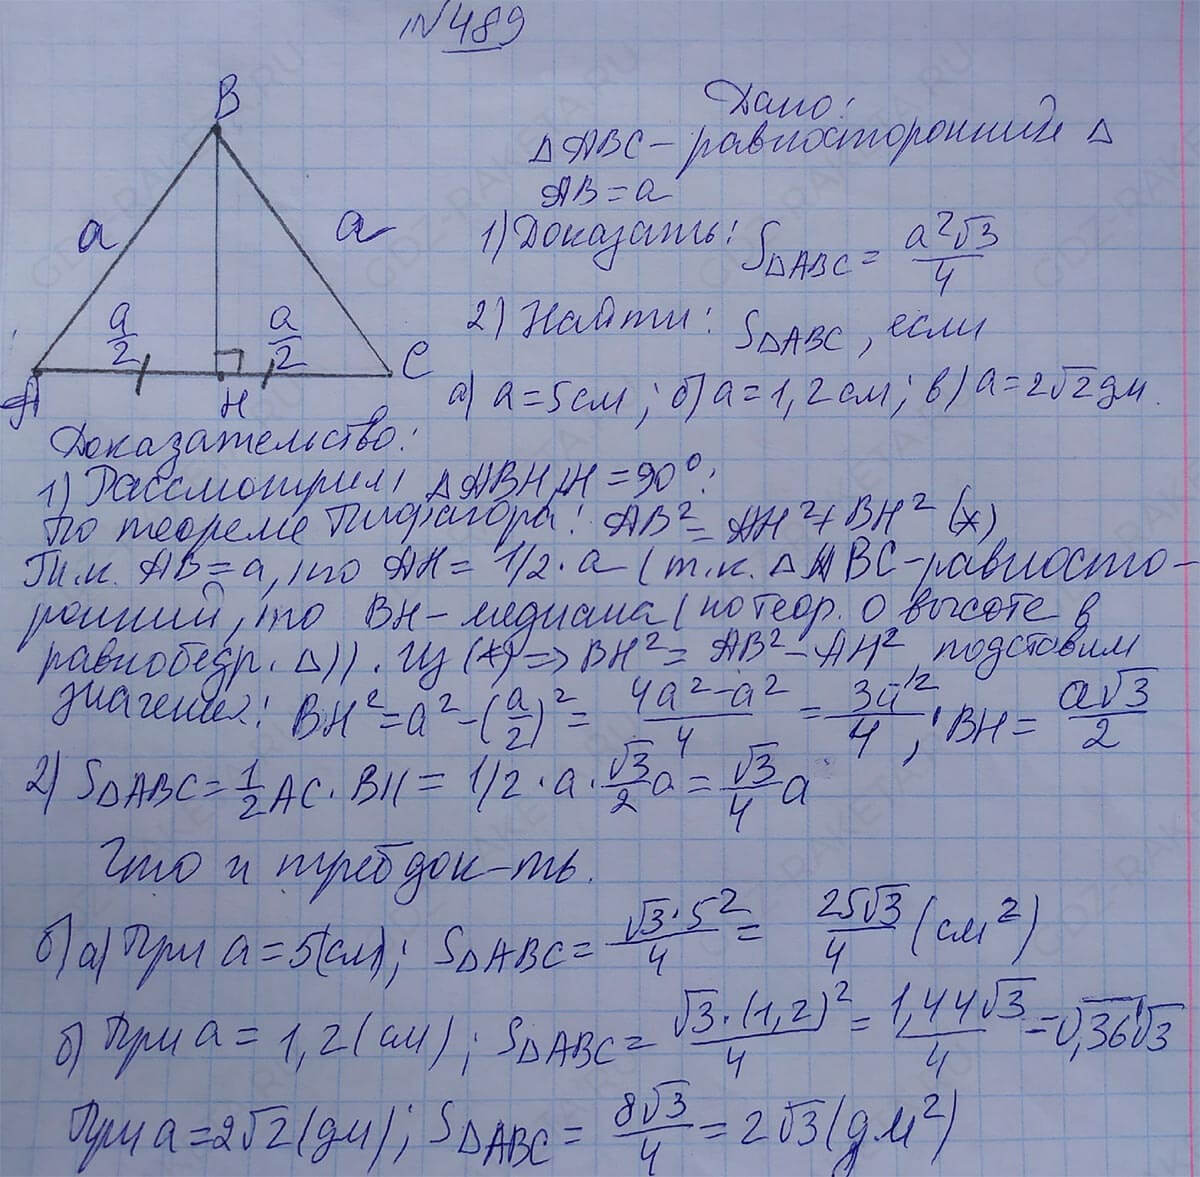 №489
B
Дано:
△ABC – равносторонний △
AB = a
a
a
1) Доказать: S△ABC = a²√3/4
2) Найти: S△ABC, если
a/2
a/2
A
H
C
а) a = 5см; б) a = 1,2см; в) a = 2√2дм.
Доказательство:
1) Рассмотрим △ABH, ∠H = 90°:
По теореме Пифагора: AB² = AH² + BH² (*)
Т.к. AB = a, то AH = 1/2 · a (т.к. △ABC – равносто-
ронний, то BH – медиана (по теор. о высоте в
равнобедр. △)). Из (*) => BH² = AB² – AH², подставим
значения: BH² = a² – (a/2)² = 4a² – a²/4 = 3a²/4; BH = a√3/2
2) S△ABC = 1/2 AC · BH = 1/2 · a · √3/2 a = √3/4 a
Что и треб док-ть.
б) а) При a = 5(см); S△ABC = √3·5²/4 = 25√3/4 (см²)
б) При a = 1,2(см); S△ABC = √3·(1,2)²/4 = 1,44√3/4 = 0,36√3
При a = 2√2(дм); S△ABC = 8√3/4 = 2√3(дм²)
GDZ-RAKETA.RU